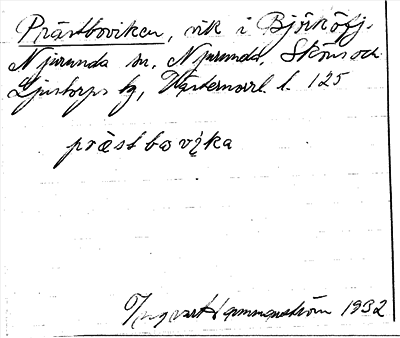 Prästboviken, vik i Björköfj.
Njurunda sn, Njurunda, Sköns och
Ljustorps tg, Västernorrl. l. 125
præst bω vi̢ka
Yngvar Hammarström 1932